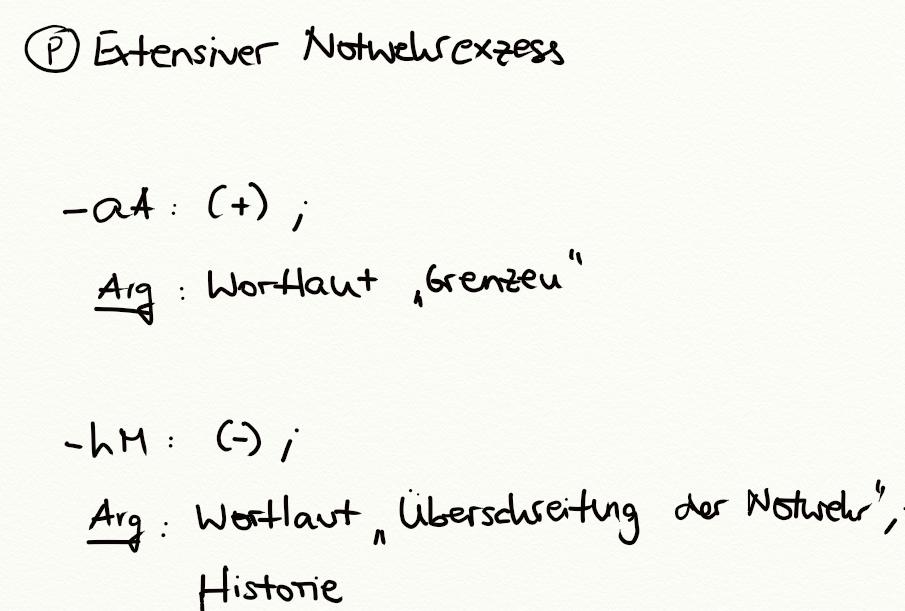 Ⓟ Extensiver Notwehrexzess
- aA: (+) ;
Arg : Wortlaut „Grenzen"
- hM : (-) ;
Arg : Wortlaut „Überschreitung der Notwehr",
Historie